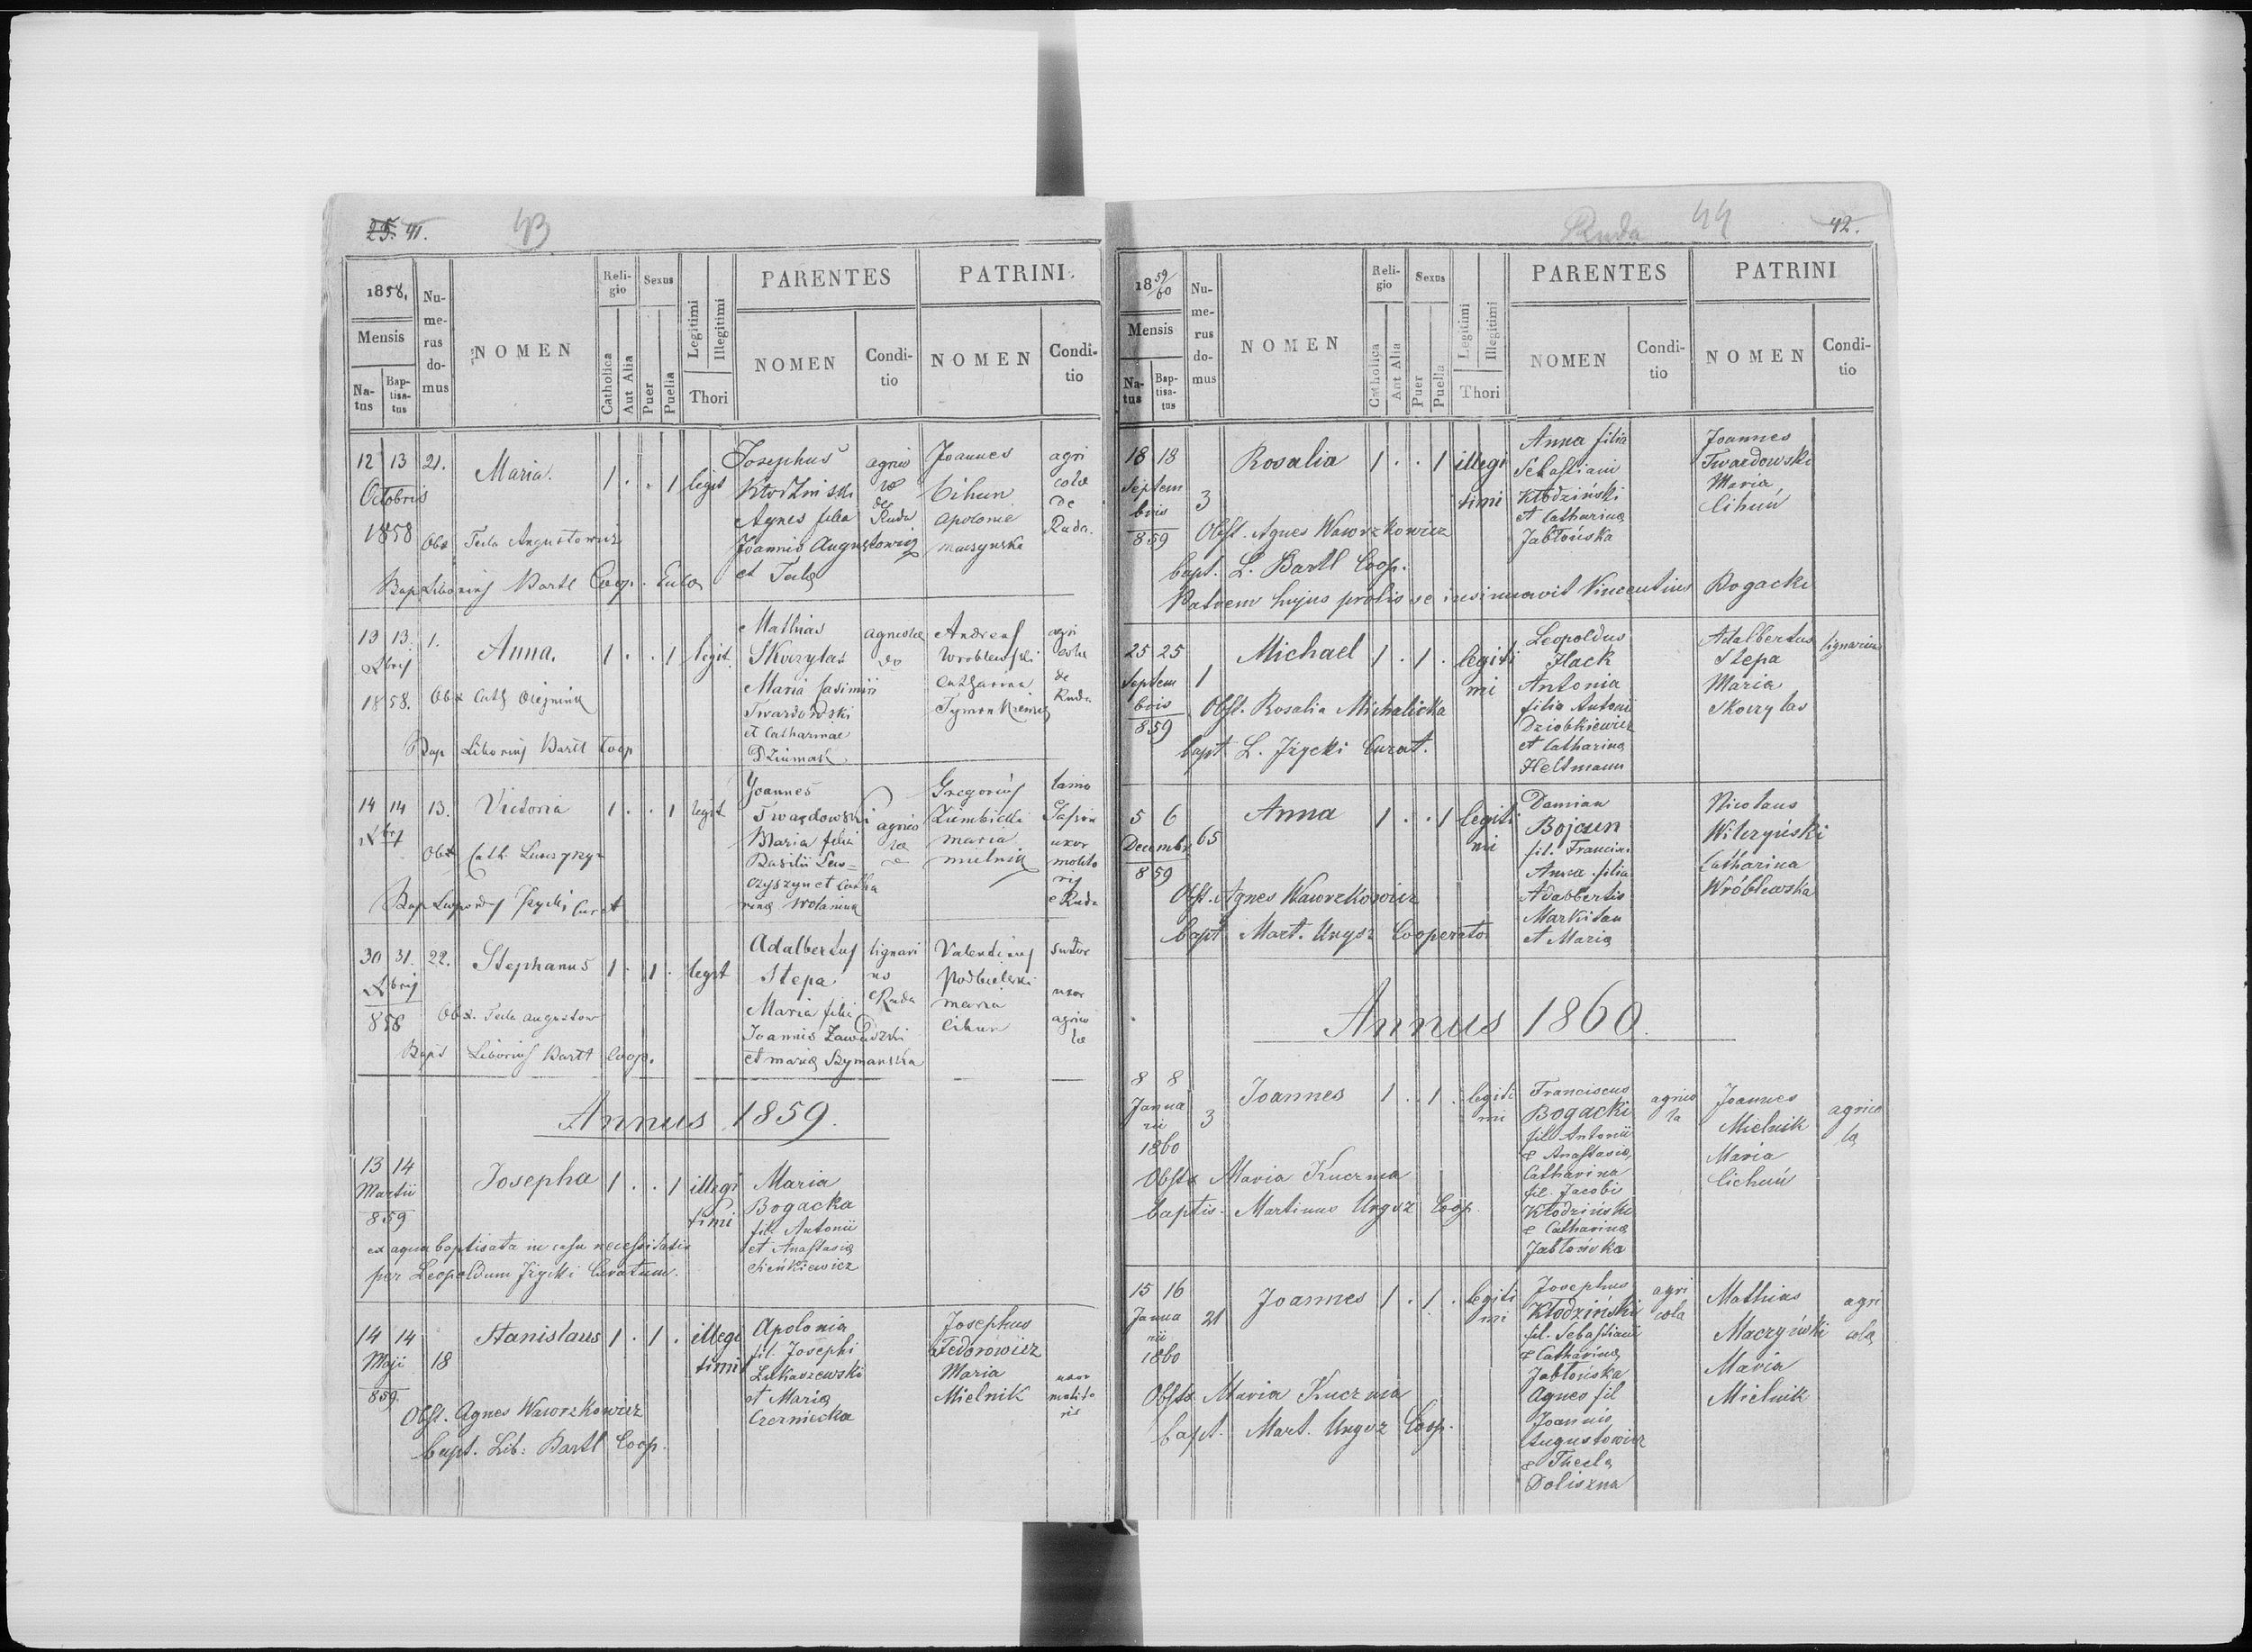 25. 41.
43
1858.
Mensis
Natus
Baptisatus
Numerus domus
NOMEN
Religio
Catholica
Aut Alia
Sexus
Puer
Puella
Legitimi
Illegitimi
Thori
PARENTES
NOMEN
Conditio
PATRINI.
NOMEN
Conditio
12 13 21. Maria. 1 . . 1 legit
Octobris
1858
Josephus
Kłodziński
Agnes filia
Joannis Augustowicz
et Tecla
agrico
læ
de
Ruda
Joannes
Cihun
Apolonia
Maczynska
agri
colæ
de
Ruda.
Obs Tecla Augustowicz
Bap Liborius Bartl Coop.
13 13. 1. Anna. 1 . . 1 legit.
Xbris
1858.
Mathias
Skoczylas
Maria Casimiri
Twardowski
et Catharinae
Dziumak.
Andreas
Wroblewski
Catharina
agri
colæ
de
Ruda
Obst Cath Olejnik
Bap Liborius Bartl Coop
14 14 13. Victoria 1 . . 1 legit
Joannes
Twardowski
Maria filia
Basilii Lew-
czyszyn et Catha
rina Wolanina
agrico
læ
Gregorius
Ziembicki
maria
mielnik
uxor
molito
ris
e Ruda
Bap Leopoldus Jżycki Curat
30 31. 22. Stephanus 1 . 1 . legit
Xbris
858
Adalbertus
Stepa
Maria filia
Joannis Zawadzki
et maria Szymanska
lignari
us
e Ruda
Valentinus
Podbielski
maria
Cihun
sutor
uxor
agrico
læ
Obst. Tecla Augustow
Bapt Liborius Bartl Coop.
Annus 1859.
13 14 Josepha 1 . . 1 illegi
timi
Martii
859
Maria
Bogacka
fil. Antonii
et Anastasia
Sieńkiewicz
ex aqua baptisata in casu necessitatis
per Leopoldum Jżycki Curatum.
14 14 18 Stanislaus 1 . 1 . illegi
timi
Maji
859.
Apolonia
fil. Josephi
Lukaszewski
et Maria
Czerniecka
Josephus
Fedorowicz
Maria
Mielnik
uxor
molito
ris
Obst. Agnes Wawrzkowicz
bapt. Lib: Bartl Coop.
Ruda 44 42.
18 59/60
Mensis
Natus
Baptisatus
Numerus domus
NOMEN
Religio
Catholica
Aut Alia
Sexus
Puer
Puella
Legitimi
Illegitimi
Thori
PARENTES
NOMEN
Conditio
PATRINI
NOMEN
Conditio
18 18 3 Rosalia 1 . . 1 illegi
timi
Septem
bris
859
Anna filia
Sebastiani
Kłodziński
et Catharina
Jabłońska
Joannes
Twardowski
Maria
Cihuń
Obst. Agnes Wawrzkowicz
bapt. L. Bartl Coop.
Patrem hujus prolis se insinuavit Vincentius Bogacki
25 25 1 Michael 1 . 1 . legiti
mi
Septem
bris
859
Leopoldus
Hack
Antonia
filia Antoni
Dziobkiewicz
et Catharina
Heltmann
Adalbertus
Stepa
Maria
Skoczylas
lignarius
Obst. Rosalia Michalicka
bapt. L. Jżycki Curat.
5 6 65 Anna 1 . . 1 legiti
mi
Decembr.
859
Damian
Bojcun
fil. Francisci
Anna filia
Adalbertis
Markitan
et Maria
Nicolaus
Wilczyński
Catharina
Wróblewska
Obst. Agnes Wawrzkowicz
bapt. Mart. Ungsz Cooperator
Annus 1860.
8 8 3 Joannes 1 . 1 . legiti
mi
Janua
rii
1860
Franciscus
Bogacki
fil Antonii
& Anastasia,
Catharina
fil. Jacobi
Kłodziński
& Catharina
Jabłońska
agrico
la
Joannes
Mielnik
Maria
Cichuń
agrico
la
Obst. Maria Kuczma
baptis. Martinus Ungsz Coop.
15 16 21 Joannes 1 . 1 . legiti
mi
Janua
rii
1860
Josephus
Kłodziński
fil. Sebastiani
& Catharina
Jabłońska
Agnes fil
Joannis
Augustowicz
& Thecla
Doliszna
agri
cola
Mathias
Maczyński
Maria
Mielnik
agri
cola
Obst. Maria Kuczma
bapt. Mart. Ungsz Coop.